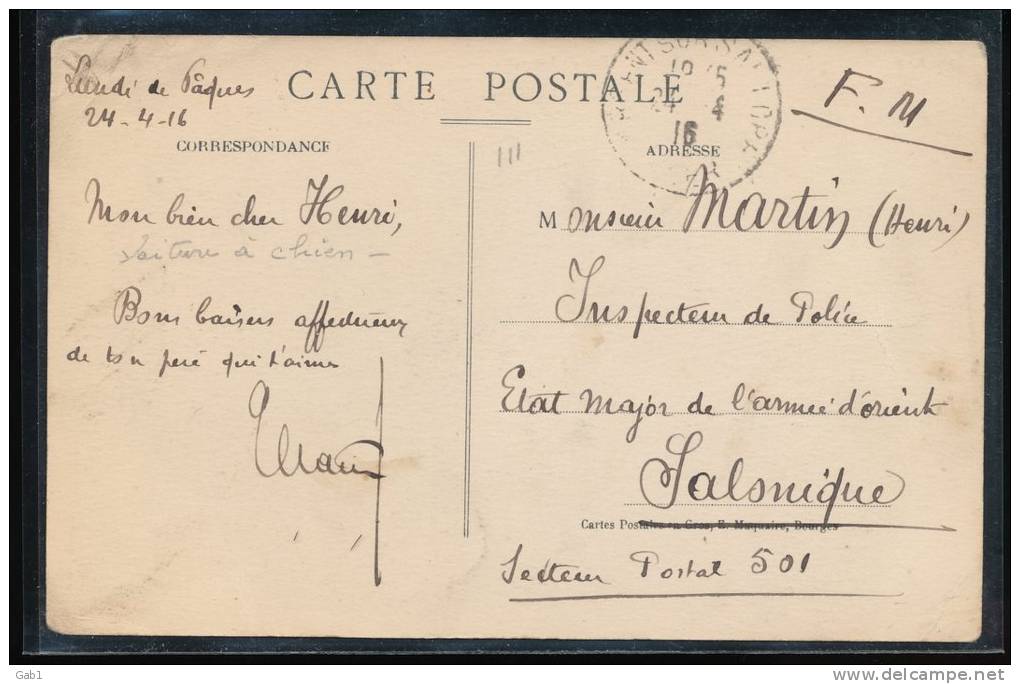 Lundi de Pâques
24-4-16
CARTE POSTALE
F. M
CORRESPONDANCE
111
ADRESSE
16
Mon bien cher Henri,
voiture à chien -
Bons baisers affectueux
de ton père qui t'aime
M Monsieur Martin (Henri)
Inspecteur de Police
Etat Major de l'armée d'orient
Salonique
Cartes Postales en Gros, E. Maquaire, Bourges
Secteur Postal 501
Gab1
www.delcampe.net